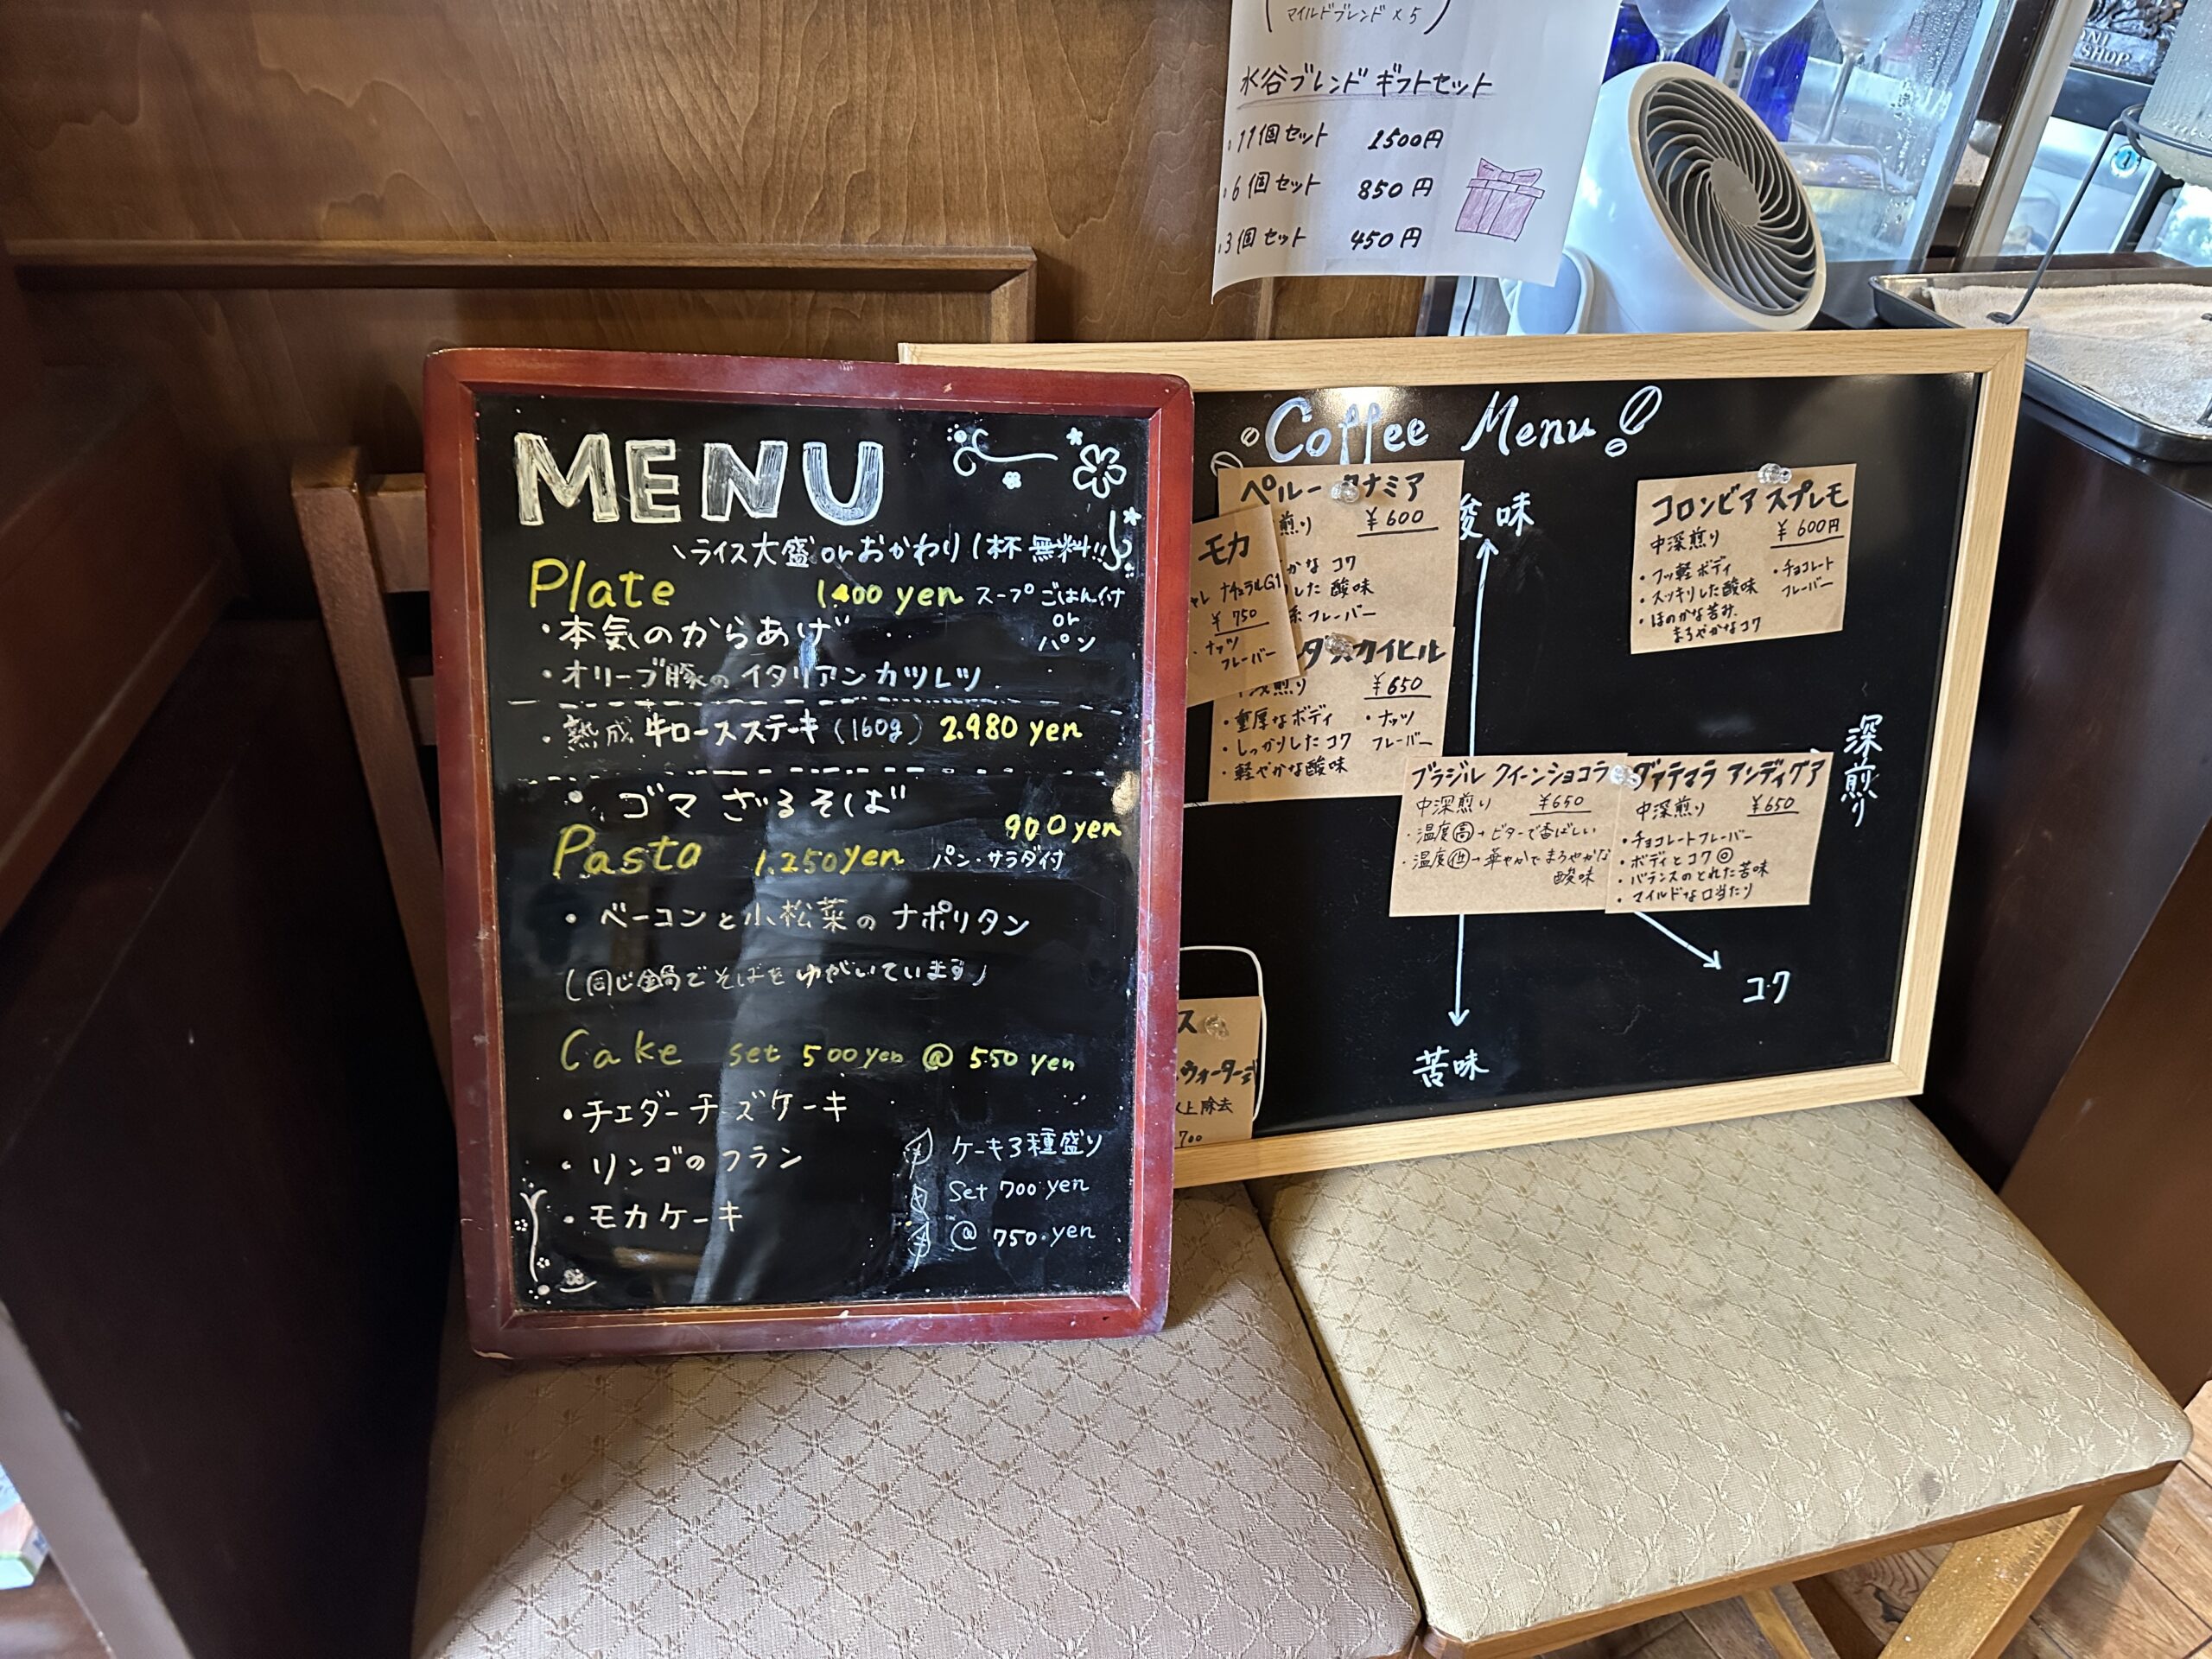 (マイルドブレンド×5)
水谷ブレンド ギフトセット
・11個セット 1500円
・6個セット 850円
・3個セット 450円
MENU
\ライス大盛 or おかわり1杯 無料!!
Plate 1400 yen スープ ごはん付
or
パン
・本気のからあげ
・オリーブ豚のイタリアンカツレツ
・熟成 牛ロースステーキ(160g) 2.980 yen
・ゴマ ざるそば
900 yen
Pasta 1.250yen パン・サラダ付
・ベーコンと小松菜のナポリタン
(同じ鍋でそばをゆがいています)
Cake set 500yen @ 550 yen
・チェダーチーズケーキ
・リンゴのフラン
・モカケーキ
ケーキ3種盛り
Set 700 yen
@ 750.yen
Coffee Menu
酸味
深煎り
コク
苦味
ペルー ナミア
煎り ¥600
かな コク
した 酸味
系 フレーバー
モカ
ナチュラルG1
¥750
・ナッツ
フレーバー
スカイヒル
煎り ¥650
・重厚なボディ ・ナッツ
・しっかりしたコク フレーバー
・軽やかな酸味
コロンビア スプレモ
中深煎り ¥600円
・フッ軽ボディ ・チョコレート
・スッキリした酸味 フレーバー
・ほのかな苦み
まろやかなコク
ブラジル クイーンショコラ
中深煎り ¥650
・温度高→ビターで香ばしい
・温度低→華やかでまろやかな
酸味
グァテマラ アンティグア
中深煎り ¥650
・チョコレートフレーバー
・ボディとコク◎
・バランスのとれた苦味
・マイルドな口当たり
ス
ウォーター
以上除去
700